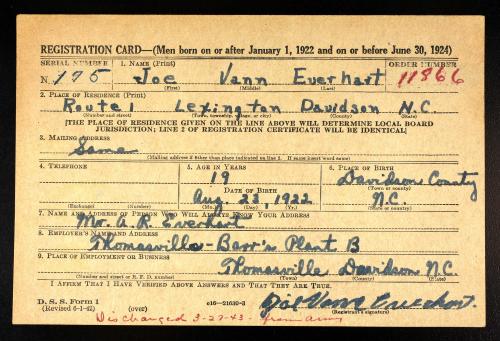 REGISTRATION CARD—(Men born on or after January 1, 1922 and on or before June 30, 1924)
SERIAL NUMBER 1. NAME (Print) ORDER NUMBER
N 175 Joe Vann Everhart 11866
(First) (Middle) (Last)
2. PLACE OF RESIDENCE (Print)
Route 1 Lexington Davidson N.C.
(Number and street) (Town, township, village, or city) (County) (State)
[THE PLACE OF RESIDENCE GIVEN ON THE LINE ABOVE WILL DETERMINE LOCAL BOARD
JURISDICTION; LINE 2 OF REGISTRATION CERTIFICATE WILL BE IDENTICAL]
3. MAILING ADDRESS
Same
(Mailing address if other than place indicated on line 2. If same insert word same)
4. TELEPHONE 5. AGE IN YEARS 6. PLACE OF BIRTH
19 Davidson County
DATE OF BIRTH (Town or county)
Aug. 23, 1922 N.C.
(Exchange) (Number) (Mo.) (Day) (Yr.) (State or country)
7. NAME AND ADDRESS OF PERSON WHO WILL ALWAYS KNOW YOUR ADDRESS
Mr. A. R. Everhart
8. EMPLOYER'S NAME AND ADDRESS
Thomasville-Barr's Plant B
9. PLACE OF EMPLOYMENT OR BUSINESS
Thomasville Davidson N.C.
(Number and street or R. F. D. number) (Town) (County) (State)
I AFFIRM THAT I HAVE VERIFIED ABOVE ANSWERS AND THAT THEY ARE TRUE.
D. S. S. Form 1
(Revised 6-1-42) (over) c16—21630-3 Joe Vann Everhart
(Registrant's signature)
Discharged 3-27-43 from army